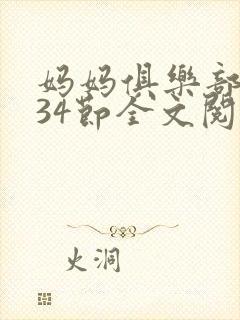 妈妈俱樂部
34节全文閱
火洞